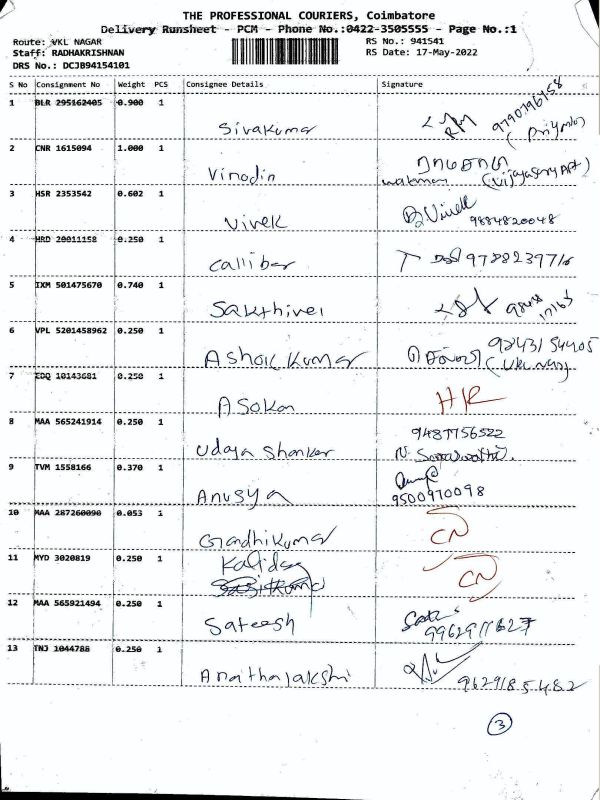 THE PROFESSIONAL COURIERS, Coimbatore
Delivery Runsheet - PCM - Phone No.:0422-3505555 - Page No.:1
Route: VKL NAGAR
Staff: RADHAKRISHNAN
DRS No.: DCJB94154101
RS No.: 941541
RS Date: 17-May-2022
S No Consignment No Weight PCS Consignee Details Signature
1 BLR 295162405 0.900 1 Sivakumar 9790796758
(Priyanka)
2 CNR 1615094 1.000 1 Vinodin
watchman
3 HSR 2353542 0.602 1 Vivek Vivek 9884820048
4 HRD 20011158 0.250 1 Calliber 9788239716
5 IXM 501475670 0.740 1 Sakthivel
6 VPL 5201458962 0.250 1 Ashok Kumar 9843154405
7 EDQ 10143681 0.250 1 Asokan HR
8 MAA 565241914 0.250 1 Udaya Shankar 9487756522
N. Saraswathi.
9 TVM 1558166 0.370 1 Anusya 9500970098
10 MAA 287260090 0.053 1 Gandhikumar CN
11 MYD 3020819 0.250 1 Kalidas CN
12 MAA 565921494 0.250 1 Sateesh 9962911627
13 TNJ 1044788 0.250 1 Anathalakshi 9629185482
3